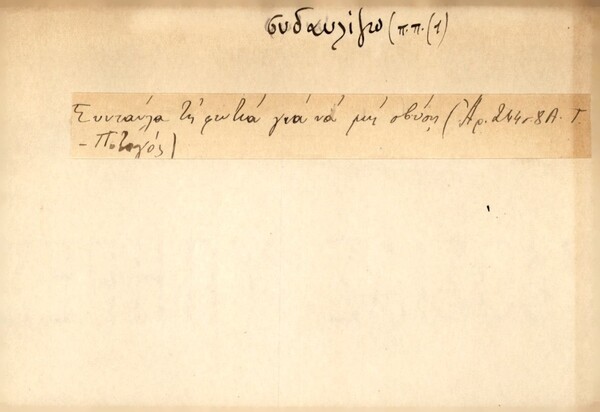 συδαυλίζω (π.π. (1)
Συνταύλα τή φωτιά γιά νά μή σβύση (Ἀρ. 244σ8 Α. Τ.
- Ποταγός)